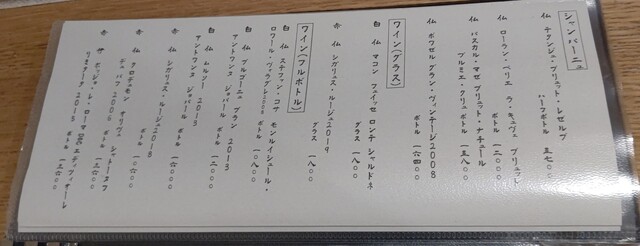 シャンパーニュ
仏 テタンジュ・ブリュット・レゼルブ
ハーフボトル 五七〇〇
仏 ローラン・ペリエ ラ・キュヴェ ブリュット
ボトル 一二〇〇〇
仏 パスカル・マゼ ブリュット・ナチュール
プルミエ・クリュ ボトル 一五八〇〇
仏 ボワゼル グラン・ヴィンテージ2008
ボトル 一六四〇〇
ワイン(グラス)
白 仏 マコン フュイッセ ロンテ シャルドネ
グラス 一八〇〇
赤 仏 シガリュス・ルージュ2019
グラス 一八〇〇
ワイン(フルボトル)
白 仏 ステファン・コサ モンルイシュール・
ロワール・ヴィラグレ2008 ボトル 一〇八〇〇
白 仏 ブルゴーニュ ブラン 2013
アントワンヌ ジョバール ボトル
白 仏 ムルソー 2013
アントワンヌ ジョバール ボトル
赤 仏 シガリュス・ルージュ2018
ボトル
赤 仏 クロデュモン オリヴェ シャトーヌフ
デュ パプ 2006 ボトル
赤 伊 ポッジョ・レ・ローマ DOC エディツィオーネ
2015 ボトル